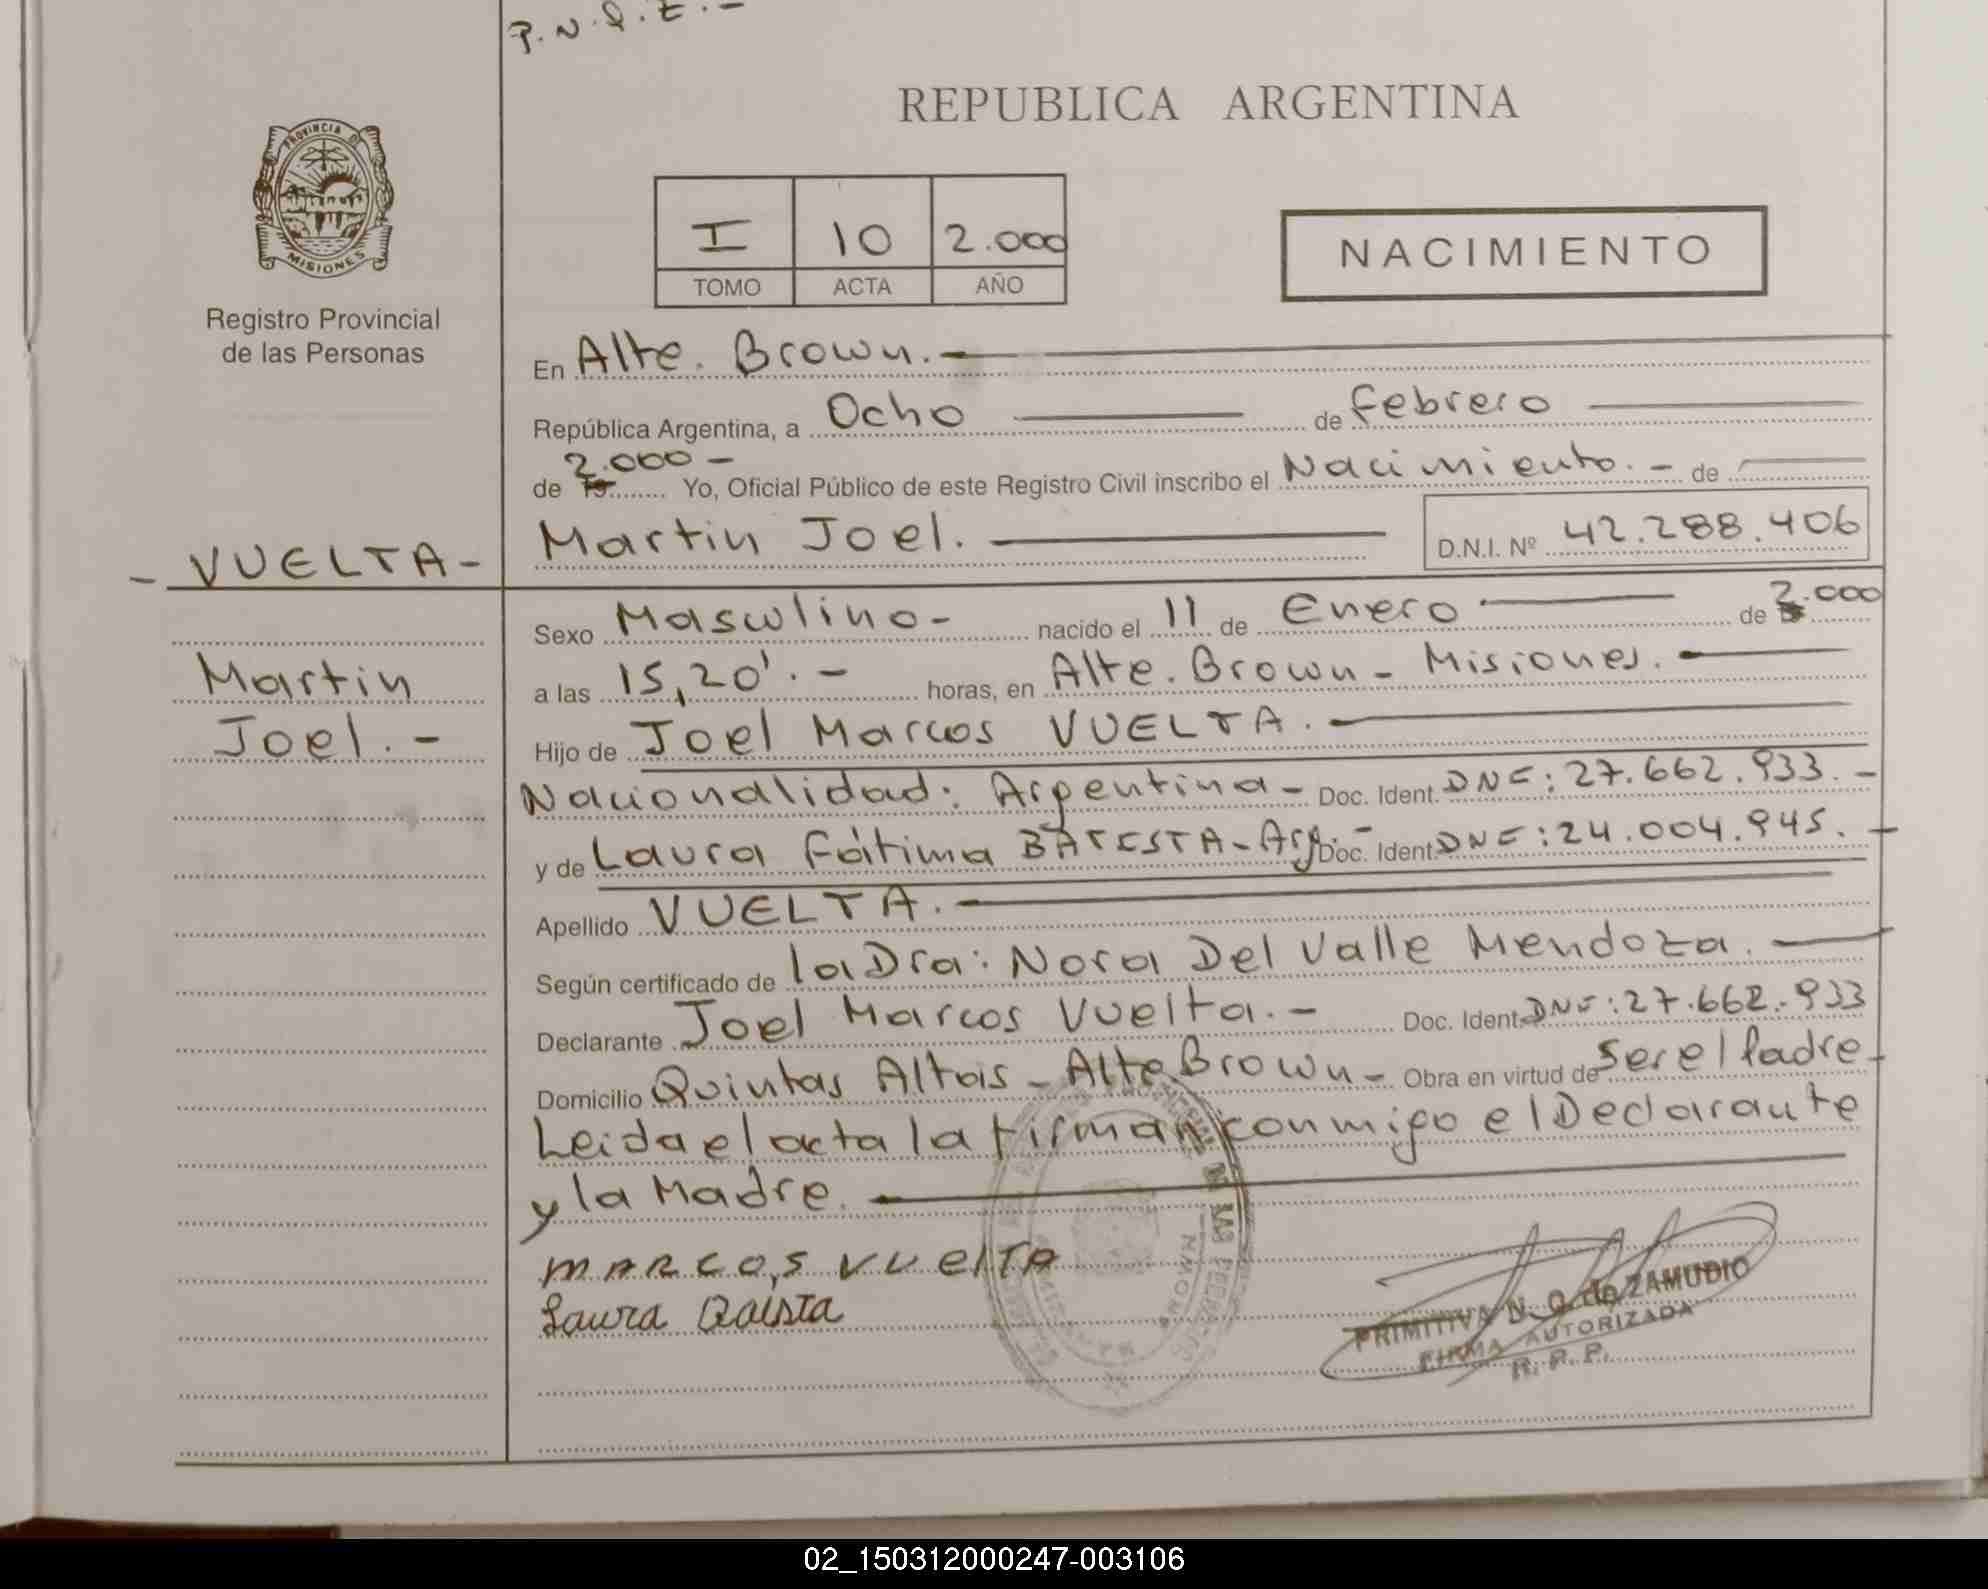 REPUBLICA ARGENTINA
PROVINCIA DE
MISIONES
Registro Provincial
de las Personas
I 10 2.000
TOMO ACTA AÑO
NACIMIENTO
En Alte. Brown.-
República Argentina, a Ocho de Febrero
de 19 2.000- Yo, Oficial Público de este Registro Civil inscribo el Nacimiento.- de
Martin Joel. D.N.I. Nº 42.288.406
- VUELTA -
Martin
Joel.-
Sexo Masculino- nacido el 11 de Enero de 2.000
a las 15,20'.- horas, en Alte. Brown - Misiones.
Hijo de Joel Marcos VUELTA.
Nacionalidad: Argentina- Doc. Ident. DNI: 27.662.933.-
y de Laura Fátima BATISTA-Arg.- Doc. Ident. DNI: 24.004.945.-
Apellido VUELTA.
Según certificado de la Dra: Nora Del Valle Mendoza.
Declarante Joel Marcos Vuelta.- Doc. Ident. DNI: 27.662.933
Domicilio Quintas Altas - Alte Brown- Obra en virtud de ser el Padre-
Leida el acta la firman conmigo el Declarante
y la Madre.
MARCOS VUELTA
Laura Batista
PRIMITIVA N. G. de ZAMUDIO
FIRMA AUTORIZADA
R. P. P.
02_150312000247-003106